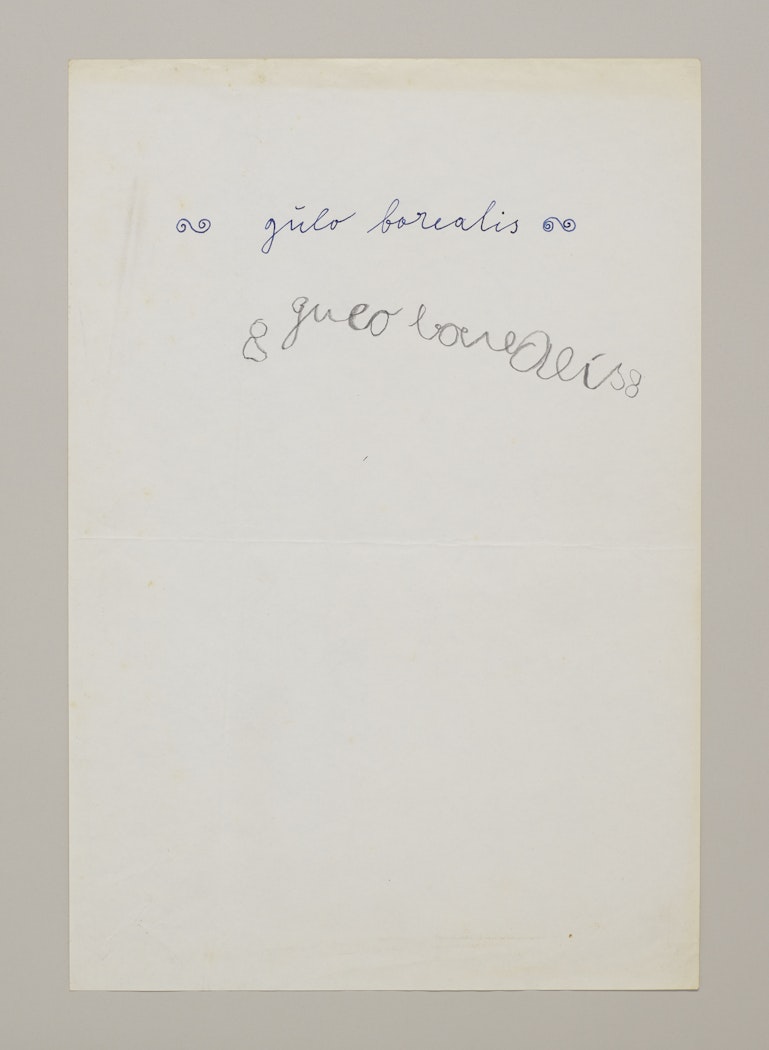 gŭlo borealis
gulo borealis